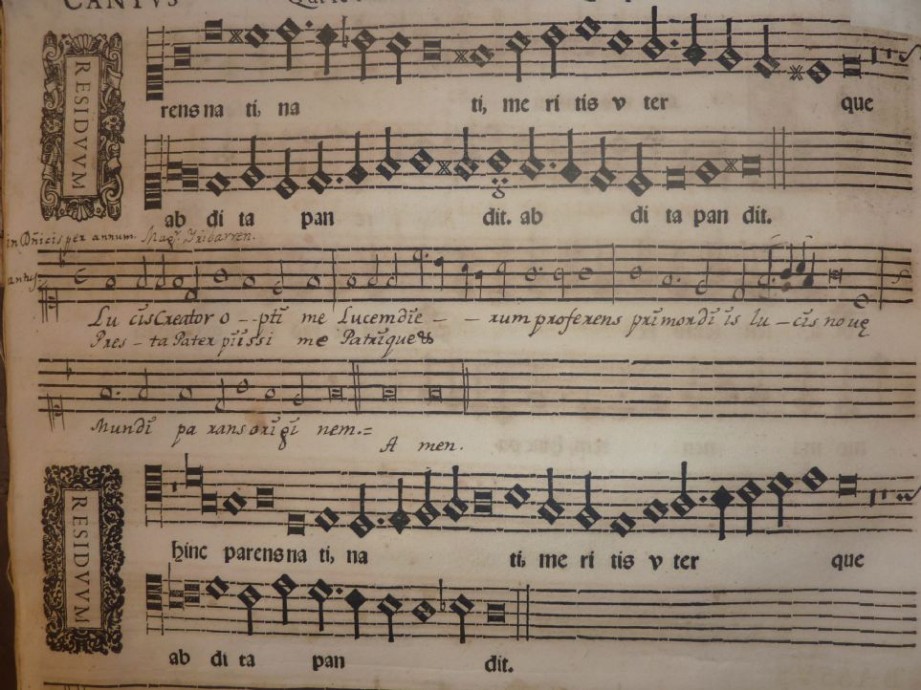 CANTVS
RESIDVVM
rens na ti, na ti, me ri tis v ter que
ab di ta pan dit. ab di ta pan dit.
in Dñicis per annum. Mag.
Lu cis Creator o - - pti me Lucem die - - rum proferens primordi is lu - cis novę
Pres - ta Pater piissi me Patrique
Mundi pa rans origi nem.=
A men.
RESIDVVM
hinc parens na ti, na ti, me ri tis v ter que
ab di ta pan dit.